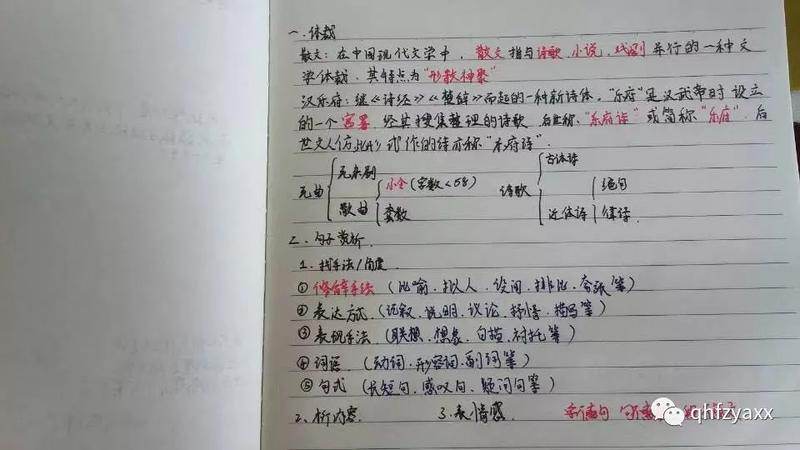 一.体裁
散文：在中国现代文学中，散文指与诗歌.小说.戏剧并行的一种文
学体裁.其特点为"形散神聚"
汉乐府：继《诗经》《楚辞》而起的一种新诗体。"乐府"是汉武帝时设立
的一个官署.经其搜集整理的诗歌.后世称."乐府诗"或简称"乐府".后
世文人仿此形式作的诗亦称"乐府诗".
元曲 元杂剧 散曲 小令(字数<58) 套数
诗歌 古体诗 近体诗 绝句 律诗.
二.句子赏析.
1.找手法/角度
①修辞手法(比喻.拟人.设问.排比.夸张等)
②表达方式(记叙.说明.议论.抒情.描写等)
③表现手法(联想.想象.白描.衬托等)
④词语(动词.形容词.副词等)
⑤句式(长短句.感叹句.疑问句等)
2.析内容. 3.表情感.
qhfzyaxx